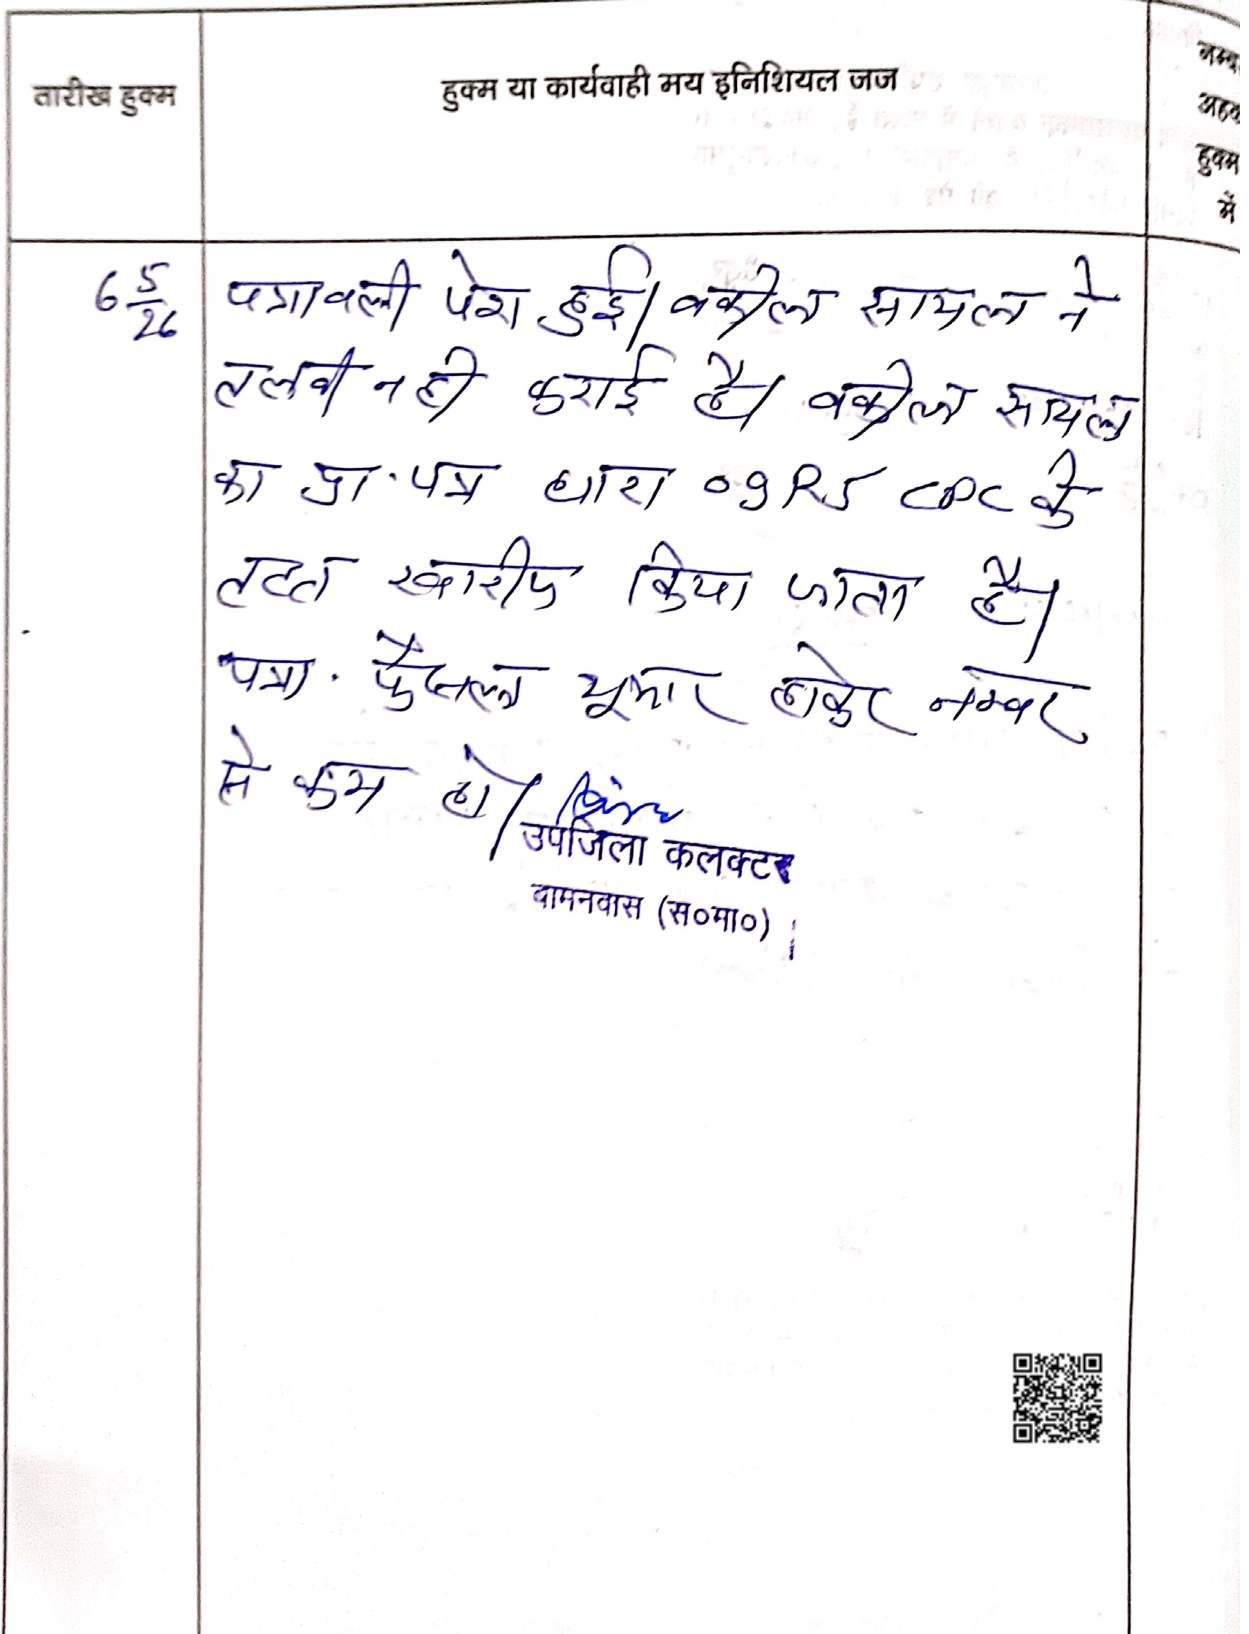 तारीख हुक्म
हुक्म या कार्यवाही मय इनिशियल जज
नम्ब
अहक
हुक्म
में
6 5/26
पत्रावली पेश हुई। वकील सायल ने
तलबी नही कराई है। वकील सायल
का प्रा. पत्र धारा 09R5 CPC के
तहत खारीज किया जाता है।
पत्रा. फैसल शुमार होकर नम्बर
से कम हो।
उपजिला कलक्टर
बामनवास (स०मा०)